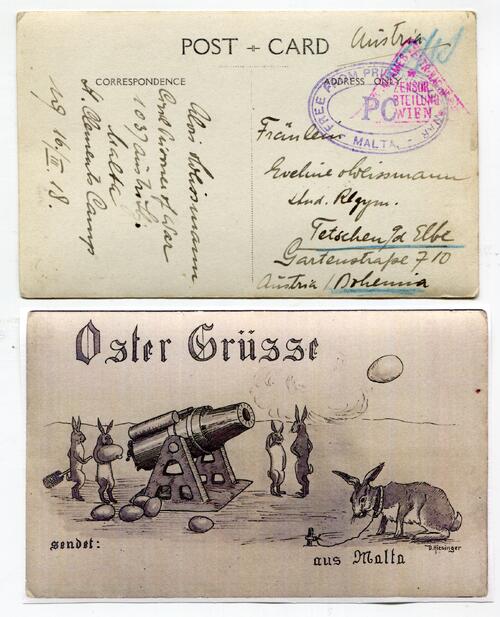 POST + CARD
Austria
CORRESPONDENCE
ADDRESS ONLY
FREE FROM PRI
PO
MALTA
ZENSUR
WIEN
Alois Weissmann
Civil Prisoner of War
1037 austr.
Malta
St. Clements Camp
16/III. 18.
Fräulein
Eveline Weissmann
stud. Rlgym.
Tetschen a/d Elbe
Gartenstraße 710
Austria / Bohemia
Oster Grüsse
sendet:
aus Malta